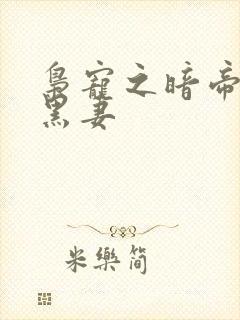 枭寵之暗帝
黑妻
米樂简